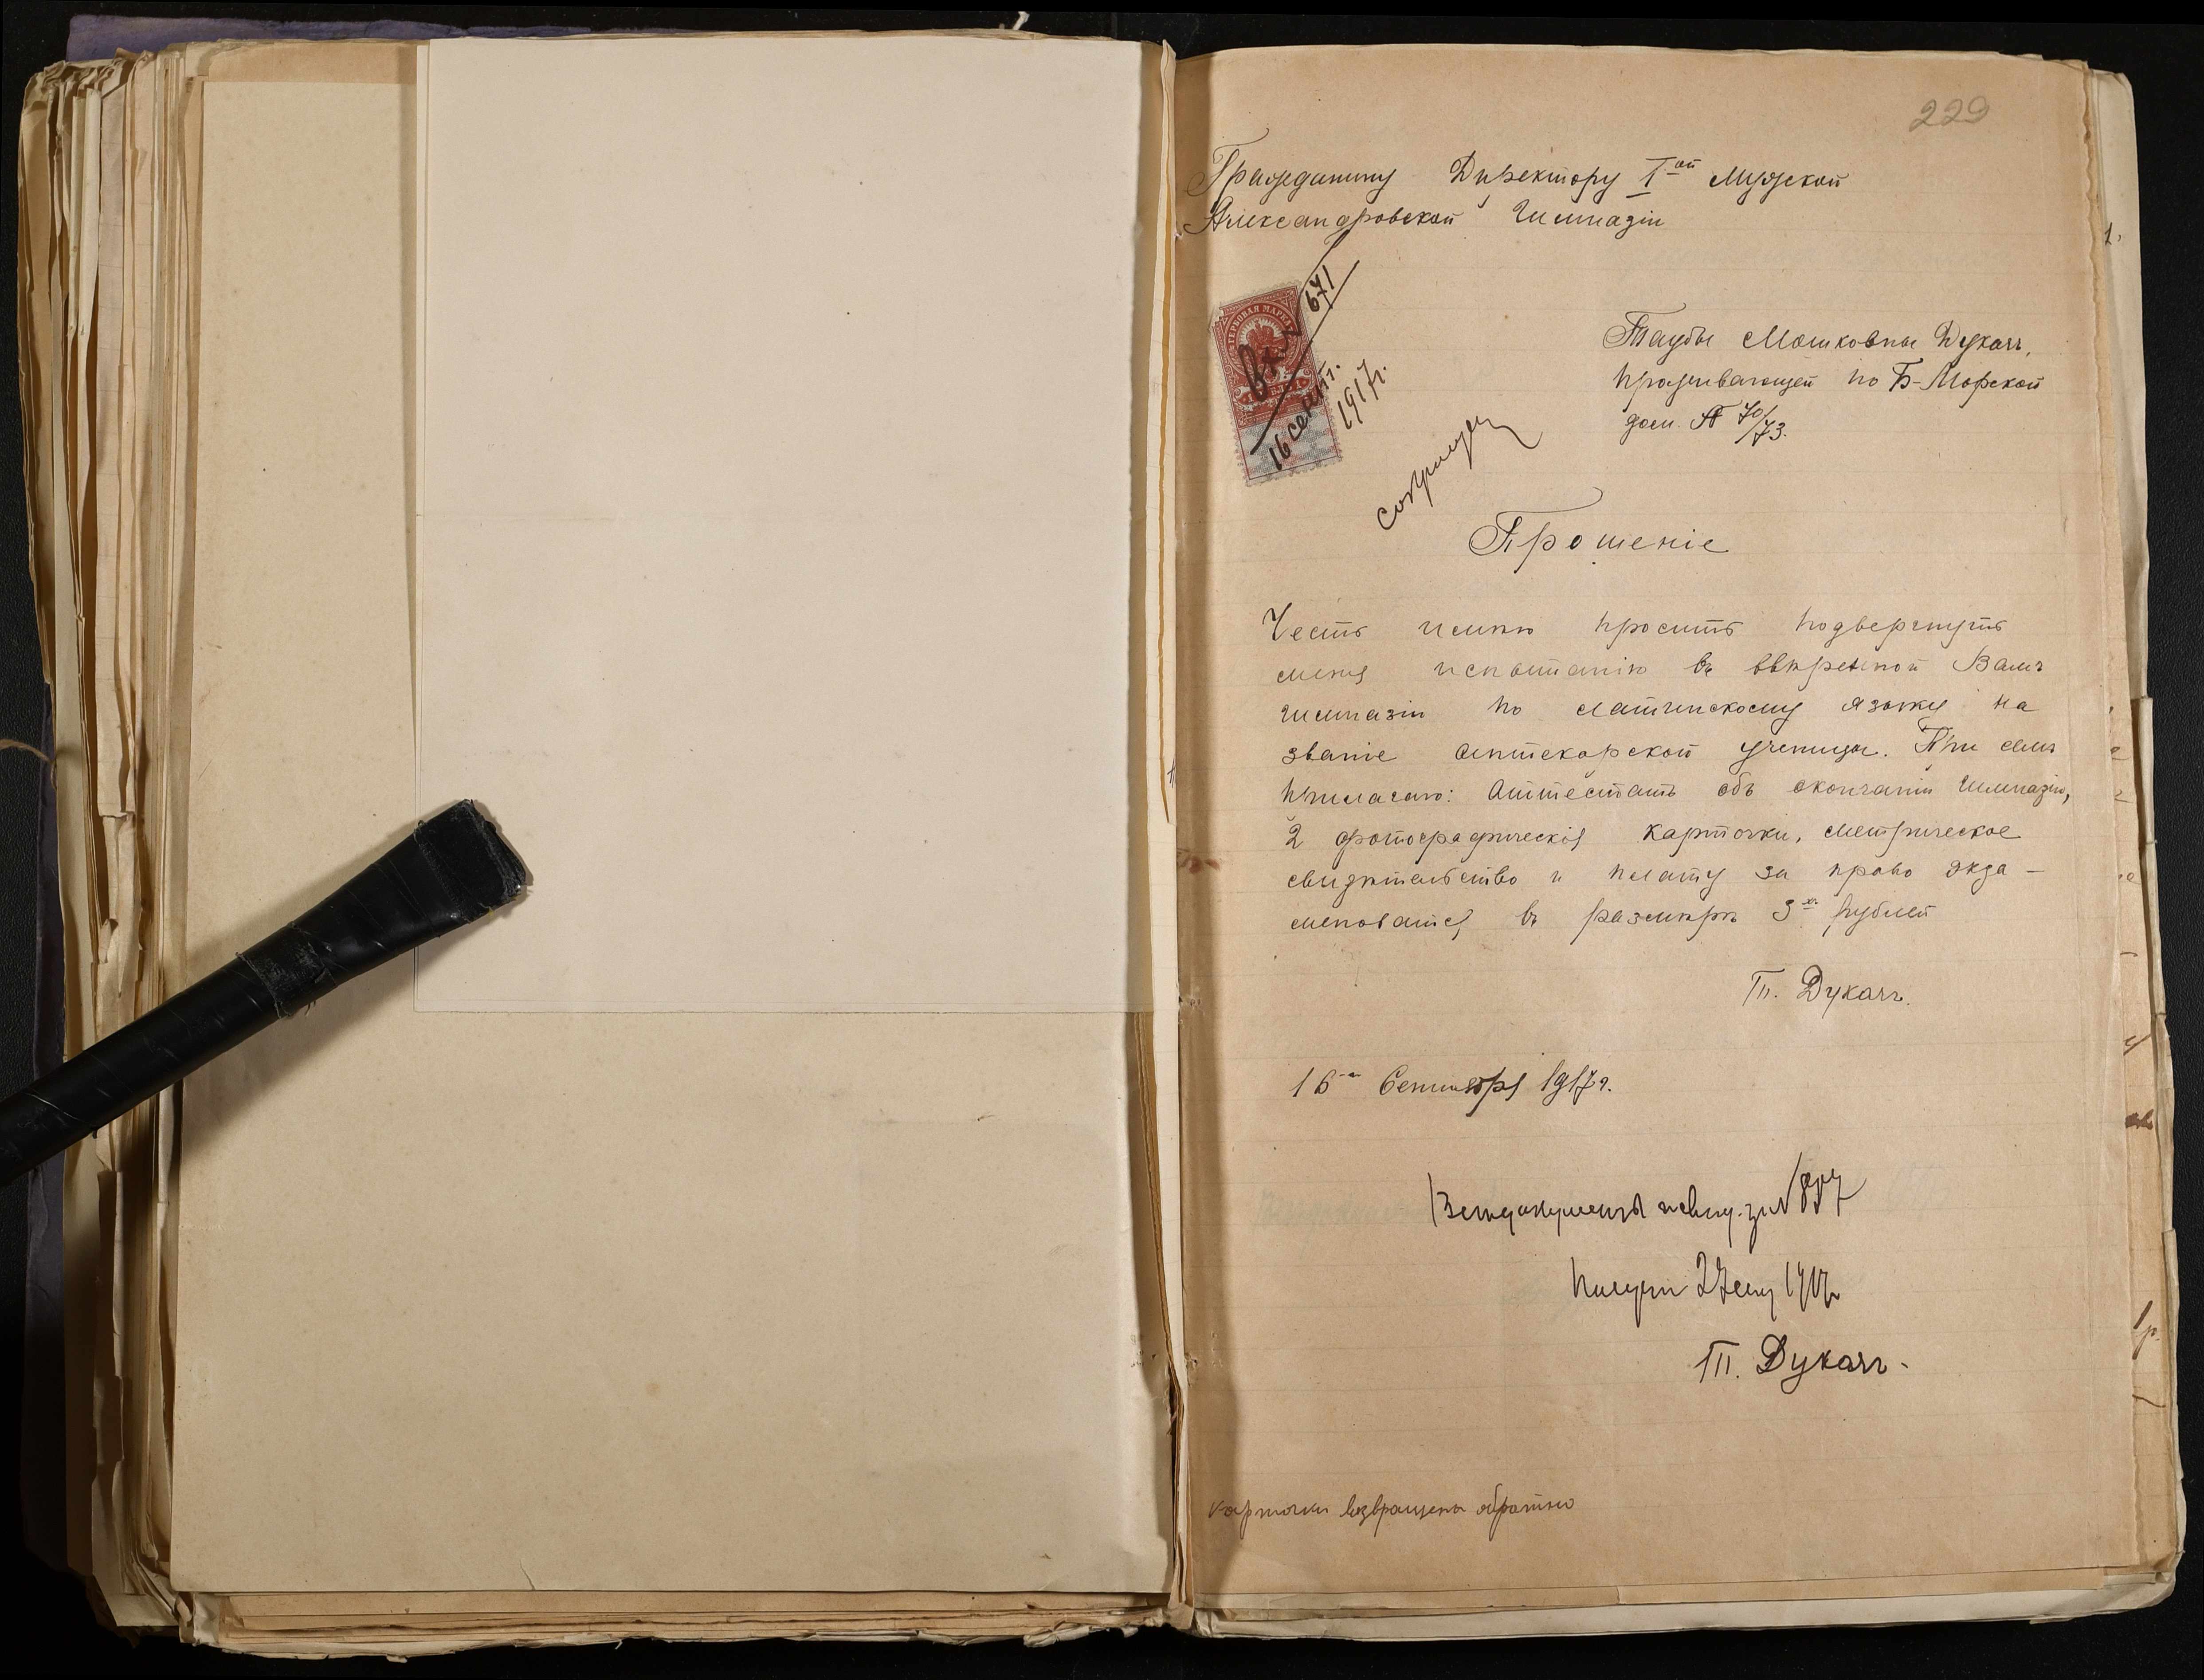 229
Гражданину Директору I-ой Мужской
Александровской Гимназіи
ГЕРБОВАЯ МАРКА
Вх. № 671
16 сент.
1917 г.
Таубы Мошковны Дукачъ,
проживающей по Б-Морской
дом. № 70/73.
Прошеніе
Честь имѣю просить подвергнуть
меня испытанію въ ввѣренной Вамъ
гимназіи по латинскому языку на
званіе аптекарской ученицы. При семъ
прилагаю: Аттестатъ объ окончаніи гимназіи,
2 фотографическія карточки, метрическое
свидѣтельство и плату за право экза-
меноваться въ размѣрѣ 3-хъ рублей
Т. Дукачъ.
16-го Сентября 1917 г.
Всѣ документы и свид. за № 807
получила 27 сент 1917 г
Т. Дукачъ.
карточки возвращены обратно